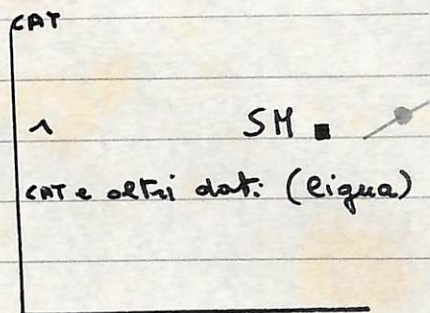 CAT
1
SM
CAT e altri dati (ligua)